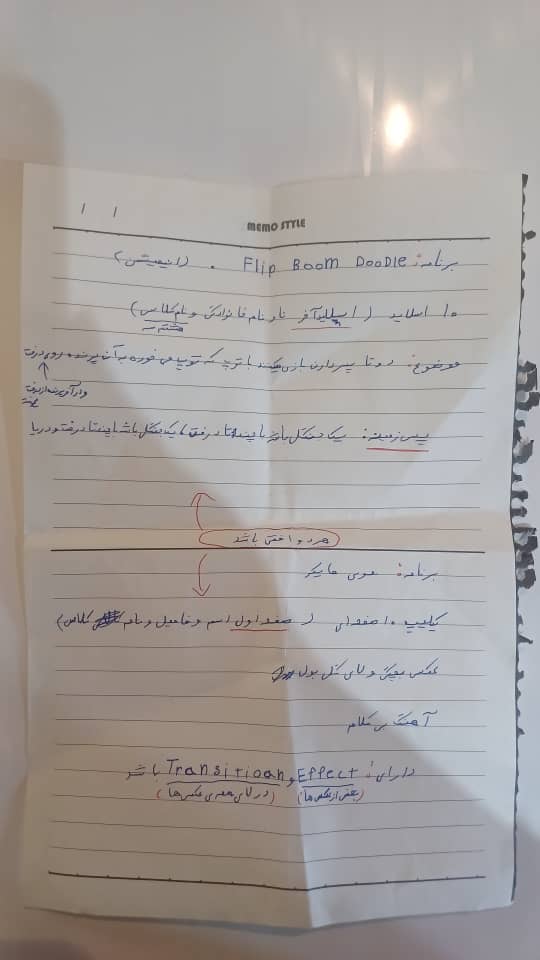 MEMO STYLE
برنامه: Flip Boom Doodle . (انیمیشن)
۱۰ اسلاید (اسلاید آخر نام و نام خانوادگی و نام کلاس)
هشتم
موضوع: دو تا پسر دارن بازی میکنند با توپ که توپ می خوره به آن پرنده روی درخت
و آن پرنده از درخت
پس زمینه: یک جنگل با چندتا درخت یا یک جنگل باشد با چندتا درخت و دریا
هر دو اختی باشد
برنامه: مووی مایکر
کلیپ ۱۰ صفحه ای (صفحه اول اسم و فامیل و نام کلاس)
عکس بچگی و لای گل بول
آهنگ بی کلام
دارای: Effect و Transitioan باشد
(بعضی از عکس ها) (در لای همه ی عکس ها)